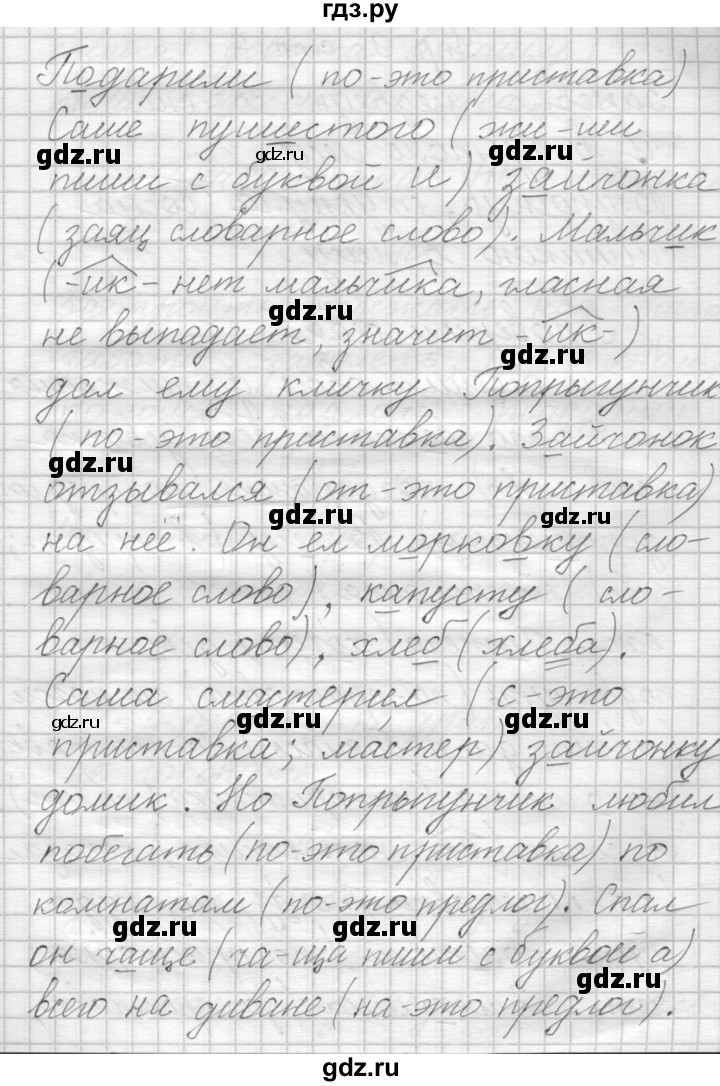 гдз.ру
Подарили (по-это приставка)
Саше пушистого (жи-ши
gdz.ru gdz.ru gdz.ru
пиши с буквой и) зайчонка
(заяц словарное слово). Мальчик
(-ик- нет мальчика, гласная
gdz.ru
не выпадает, значит -ик-)
gdz.ru
дал ему кличку Попрыгунчик
(по-это приставка). Зайчонок
gdz.ru
отзывался (от-это приставка)
gdz.ru gdz.ru
на неё. Он ел морковку (сло-
варное слово), капусту (сло-
gdz.ru
варное слово), хлеб (хлеба).
Саша смастерил (с-это
gdz.ru gdz.ru gdz.ru
приставка; мастер) зайчонку
домик. Но Попрыгунчик любил
побегать (по-это приставка) по
комнатам (по-это предлог). Спал
gdz.ru gdz.ru
он чаще (ча-ща пиши с буквой а)
gdz.ru
всего на диване (на-это предлог).
gdz.ru